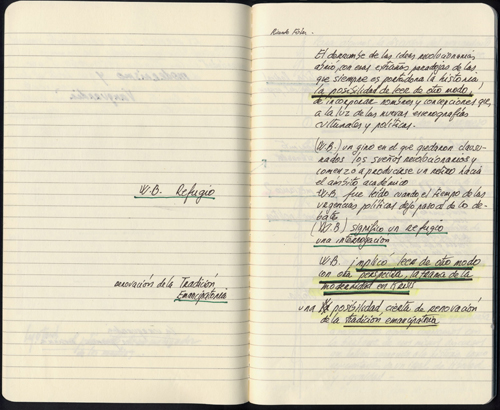 W.B. Refugio
renovación de la Tradición
Emancipatoria
Ricardo Forster.
El derrumbe de las ideas revolucionarias
abrió, con esas extrañas paradojas de las
que siempre es portadora la historia,
la posibilidad de leer de otro modo,
de incorporar nombres y concepciones que,
a la luz de las nuevas escenografías
culturales y políticas.
(W.B.) un giro en el que quedaron clausu-
rados los sueños revolucionarios y
comenzó a producirse un hacia
el ámbito académico
W.B. fue leído cuando el tiempo de las
urgencias políticas dejó paso al de los de-
bates.
(W.B.) significó un refugio
una interrogación
W.B. implicó leer de otro modo
con otra perspectiva, la trama de la
modernidad en crisis
una posibilidad cierta de renovación
de la tradición emancipatoria